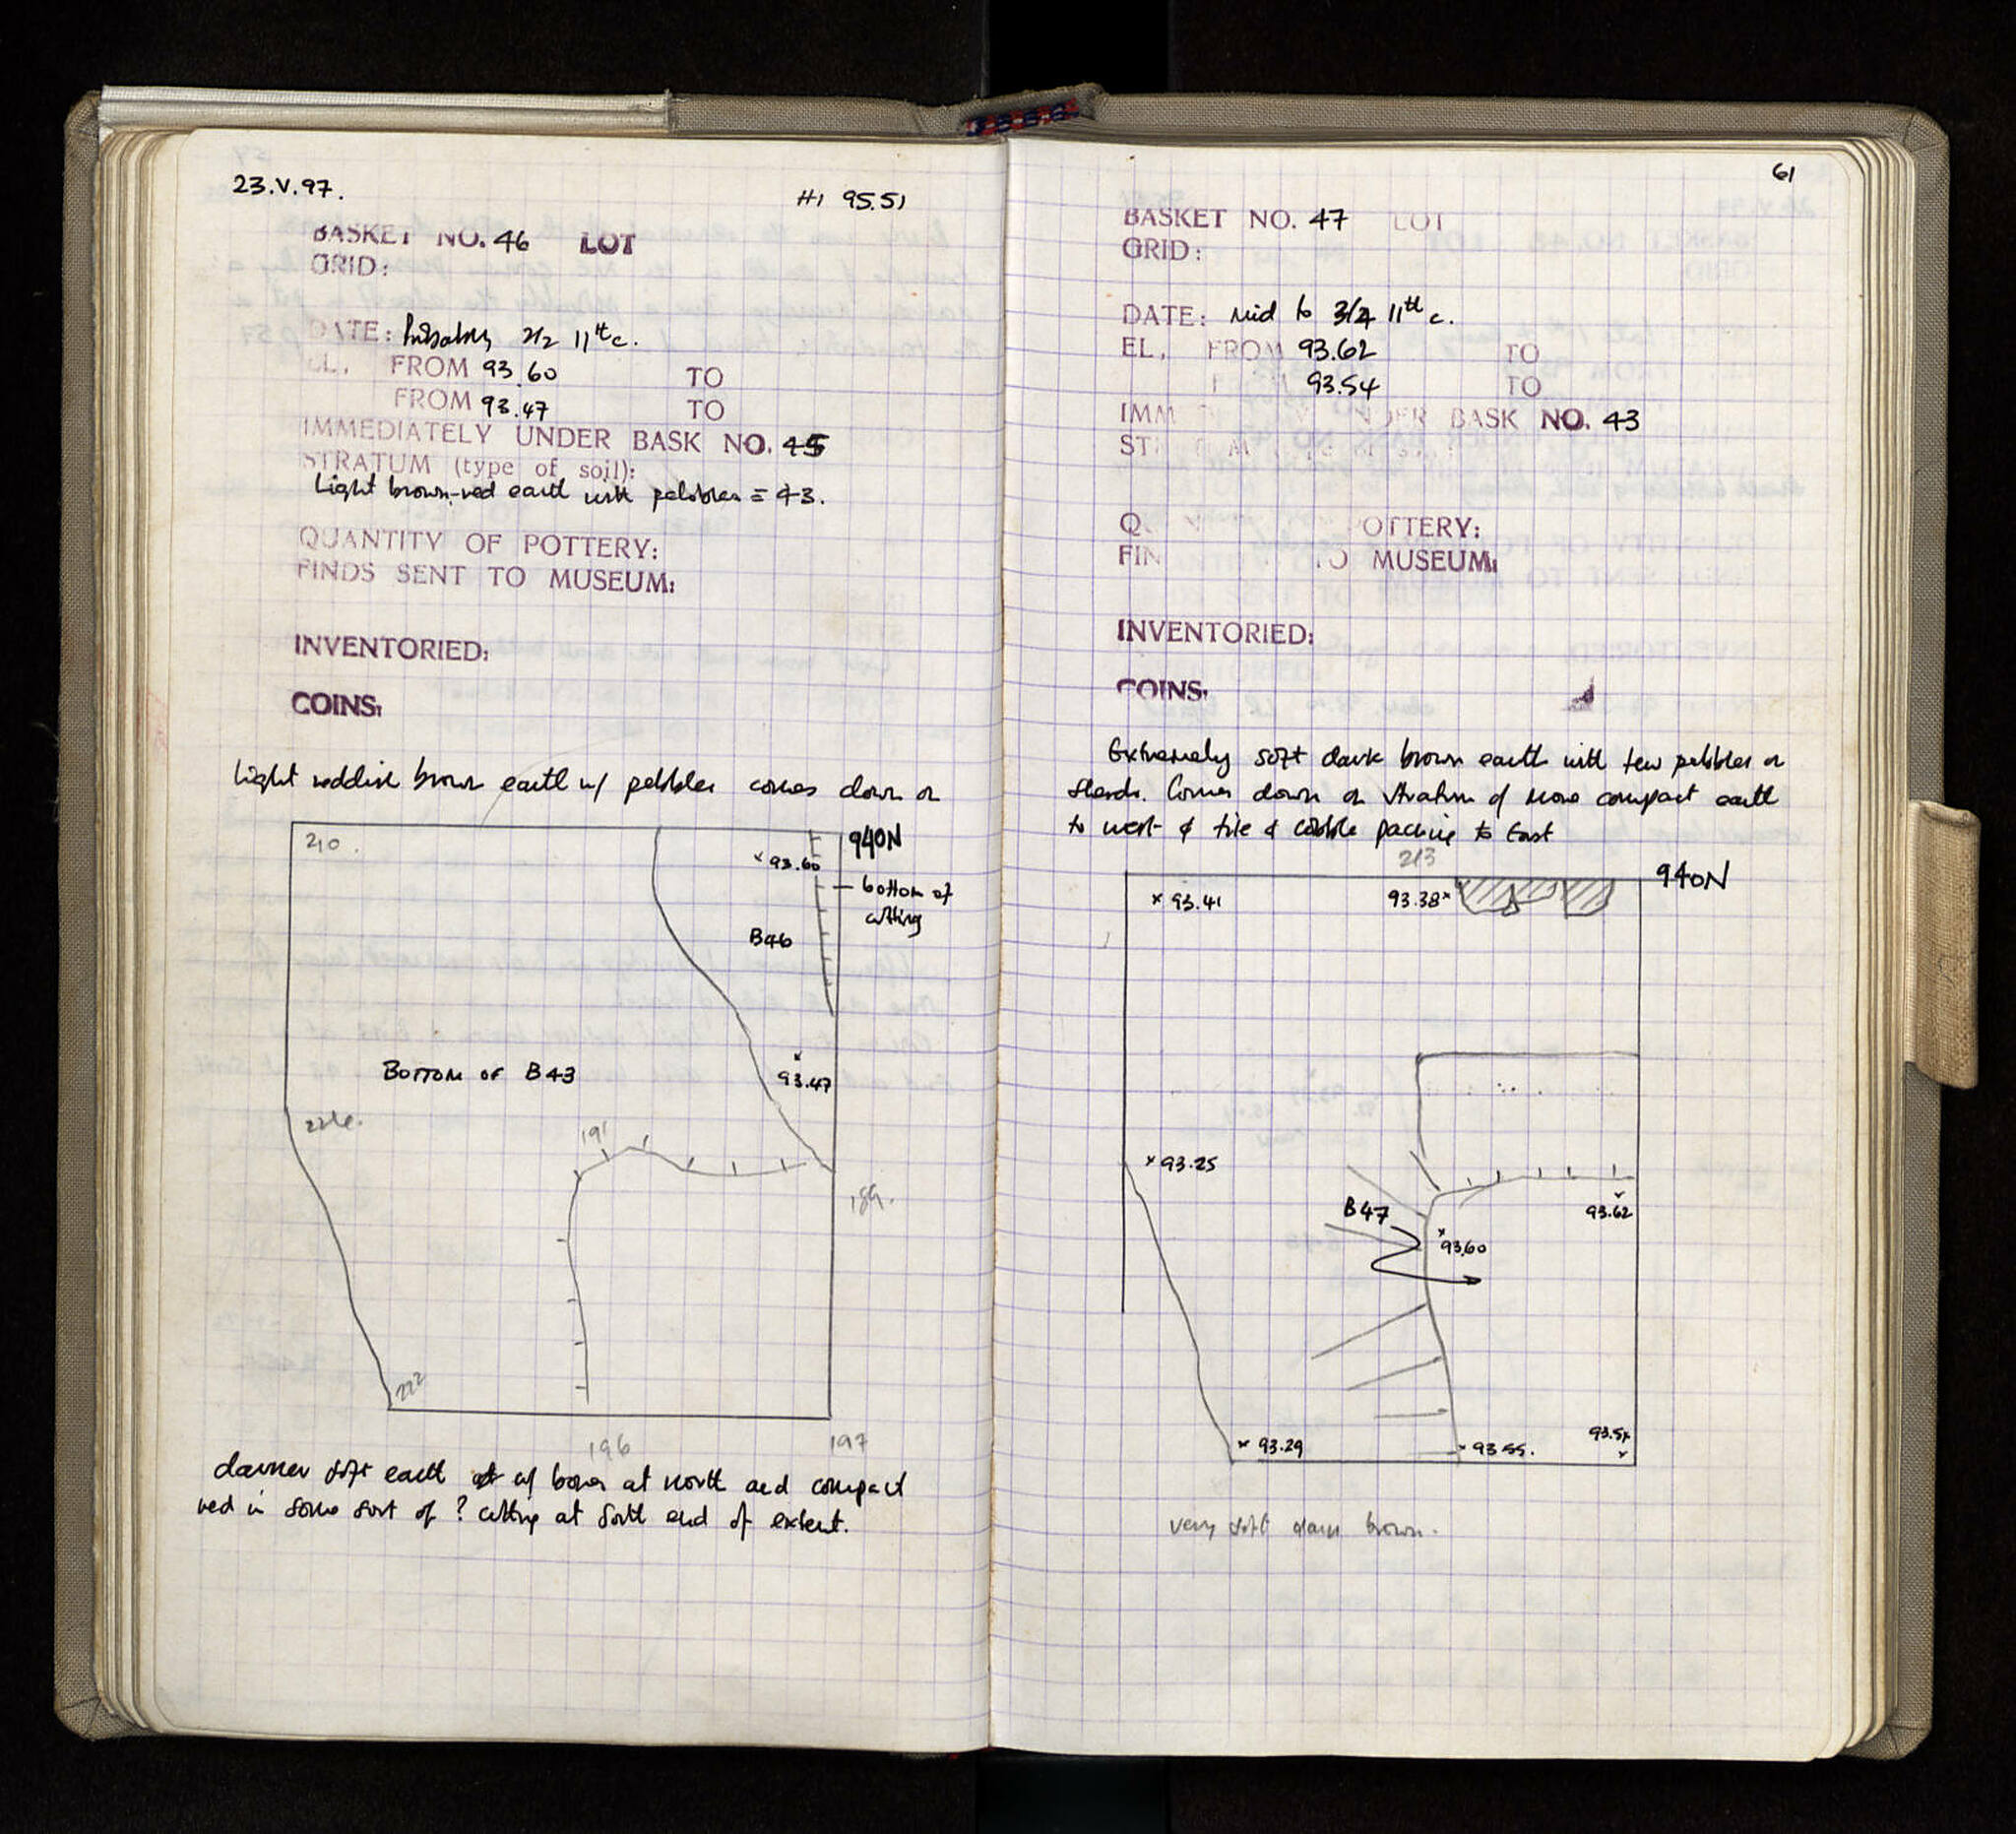 23.V.97.
HI 95.51
BASKET NO. 46 LOT
GRID:
DATE: Probably 2/2 11th c.
EL. FROM 93.60 TO
FROM 93.47 TO
IMMEDIATELY UNDER BASK NO. 45
STRATUM (type of soil):
Light brown-red earth with pebbles = 43.
QUANTITY OF POTTERY:
FINDS SENT TO MUSEUM:
INVENTORIED:
COINS:
Light reddish brown earth w/ pebbles comes down on
210.
940N
x 93.60
bottom of
cutting
B46
BOTTOM OF B43
x
93.47
191
189.
222
196
197
darker soft earth w/ bones at north and compact
red in some sort of ? cutting at South end of extent.
61
BASKET NO. 47 LOT
GRID:
DATE: Mid to 3/4 11th c.
EL. FROM 93.62 TO
93.54 TO
IMM UNDER BASK NO. 43
ST
Q POTTERY:
FIN TO MUSEUM:
INVENTORIED:
COINS:
Extremely soft dark brown earth with few pebbles or
sherds. Comes down on stratum of more compact earth
to west & tile & cobble packing to East
213
940N
x 93.41
93.38x
x 93.25
B47
93.62
x
93.60
x 93.29
x 93.55.
93.54
x
very soft dark brown.